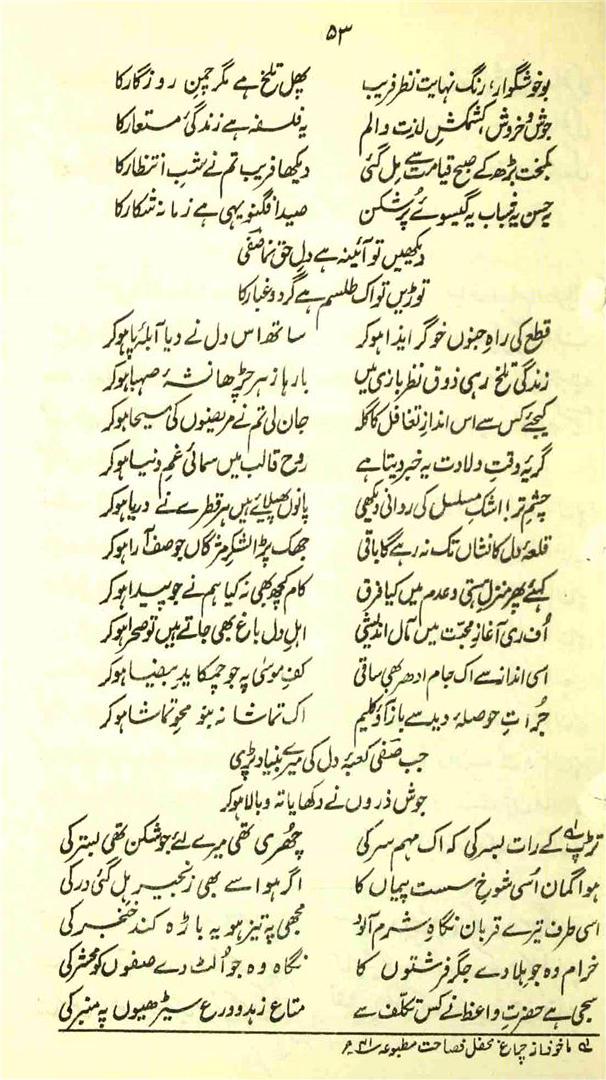 ۵۳
بو خوشگوار، رنگ نہایت نظر فریب پھل تلخ ہے مگر چمنِ روزگار کا
جوش و خروش، کشمکشِ لذت و الم یہ فلسفہ ہے زندگیٔ مستعار کا
کمبخت بڑھ کے صبحِ قیامت سے مل گئی دیکھا فریب تم نے شبِ انتظار کا
یہ حسن یہ شباب یہ گیسوئے پُر شکن صید افگنو یہی ہے زمانہ شکار کا
دیکھیں تو آئینہ ہے دلِ حق نما صفیؔ
توڑیں تو اک طلسم ہے گرد و غبار کا
قطع کی راہِ جنوں خوگرِ ایذا ہو کر ساتھ اس دل نے دیا آبلۂ پا ہو کر
زندگی تلخ رہی ذوقِ نظر بازی میں بارہا زہر چڑھا نشۂ صہبا ہو کر
کیجئے کس سے اس اندازِ تغافل کا گلہ جان لی تم نے مریضوں کی مسیحا ہو کر
گریۂ وقتِ ولادت یہ خبر دیتا ہے روح قالب میں سمائی غمِ دنیا ہو کر
چشمِ تر! اشکِ مسلسل کی روانی دیکھی پانوں پھیلائے ہیں ہر قطرے نے دریا ہو کر
قلعۂ دل کا نشاں تک نہ رہے گا باقی جھک پڑا لشکرِ مژگاں جو صف آرا ہو کر
کہئے پھر منزلِ ہستی و عدم میں کیا فرق کام کچھ بھی نہ کیا ہم نے جو پیدا ہو کر
اُف ری آغازِ محبّت میں مآل اندیشی اہلِ دل باغ بھی جاتے ہیں تو صحرا ہو کر
اسی انداز سے اک جام ادھر بھی ساقی کفِ موسیٰ پہ جو چمکا یدِ بیضا ہو کر
جرأتِ حوصلۂ دید سے باز آؤ کلیم اک تماشا نہ بنو محوِ تماشا ہو کر
جب صفیؔ کعبۂ دل کی میرے بنیاد پڑی
جوشِ ذروں نے دکھایا تہ و بالا ہو کر
تڑپ؎ کے رات بسر کی کہ اک مہم سر کی چھُری تھی میرے لئے جو شکن تھی بستر کی
ہوا گمان اُسی شوخِ سست پیماں کا اگر ہوا سے بھی زنجیر ہل گئی در کی
اسی طرف تیرے قربان نگاہِ شرم آلود مجھی پہ تیز ہو یہ باڑھ کند خنجر کی
خرام وہ جو ہلا دے جگر فرشتوں کا نگاہ وہ جو اُلٹ دے صفوں کو محشر کی
سجی ہے حضرتِ واعظ نے کس تکلّف سے متاعِ زہد و ورع سیڑھیوں پہ منبر کی
ماخوذ از چراغِ محفلِ فصاحت مطبوعہ